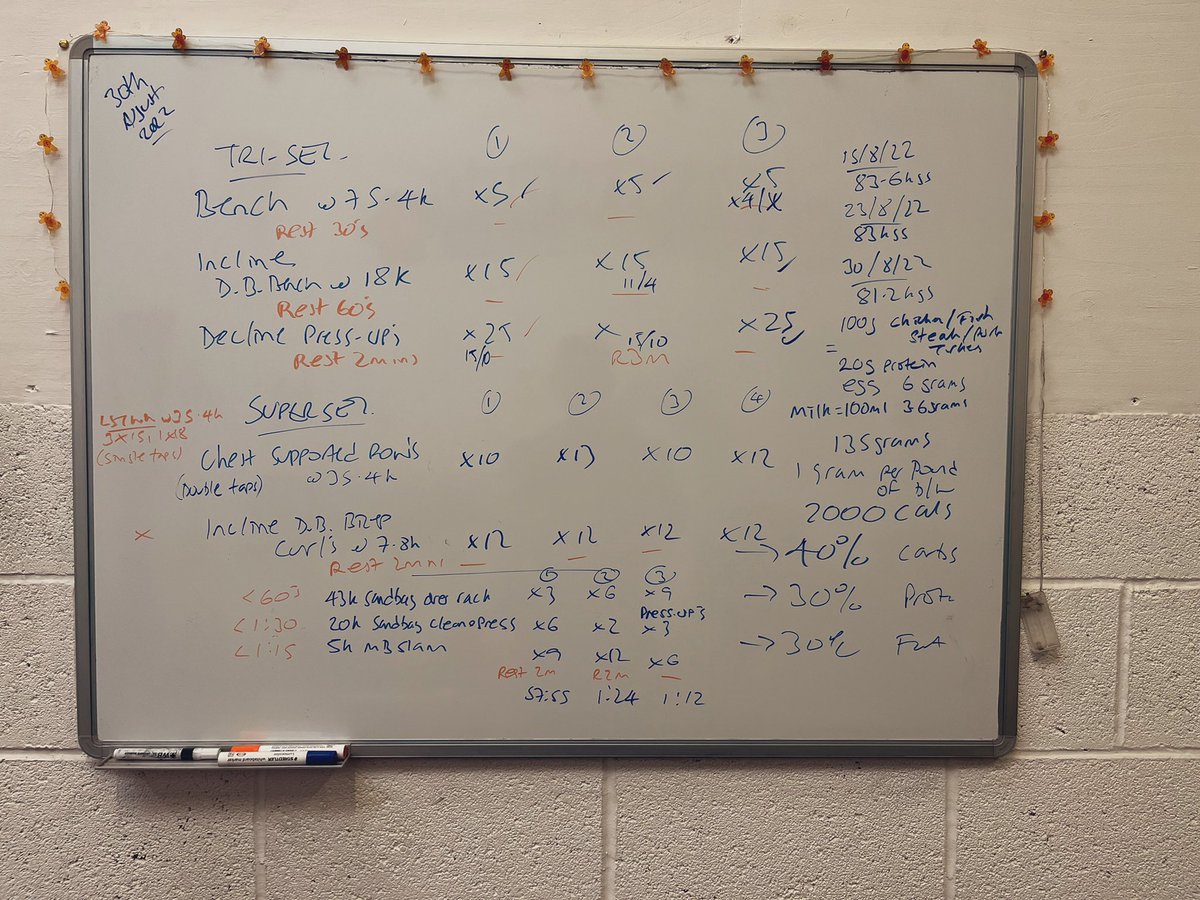 30th
August
2022
TRI-SET. ① ② ③
Bench w 75.4k x5 x5 x5
x4/
Rest 30's
Incline
D.B. Bench w 18k x15 x15 x15
11/4
Rest 60's
Decline Press-up's x25 x x25
15/10 15/10
Rest 2mins R3M
SUPERSET. ① ② ③ ④
w35.4k
3x15, 1x18
(single taps)
Chest supported Row's x10 x13 x10 x12
(Double taps) w35.4k
x Incline D.B. Bicep
Curl's w 7.8k x12 x12 x12 x12
Rest 2min
① ② ③
<60s 43k Sandbag over rack x3 x6 x9
Press-up's
<1:30 20k Sandbag clean & press x6 x2 x3
<1:15 5k MB slam x9 x12 x6
Rest 2m R2m
57:55 1:24 1:12
15/8/22
83.6kgs
23/8/22
83kgs
30/8/22
81.2kgs
100g Chicken/Fish
Steak/Pork
Turkey
=
20g protein
egg 6 grams
Milk=100ml 3.6grams
135grams
1 gram per Pound
of b/w
2000 cals
→ 40% Carbs
→ 30% Prote
→ 30% Fat
STAEDTLER whiteboard marker